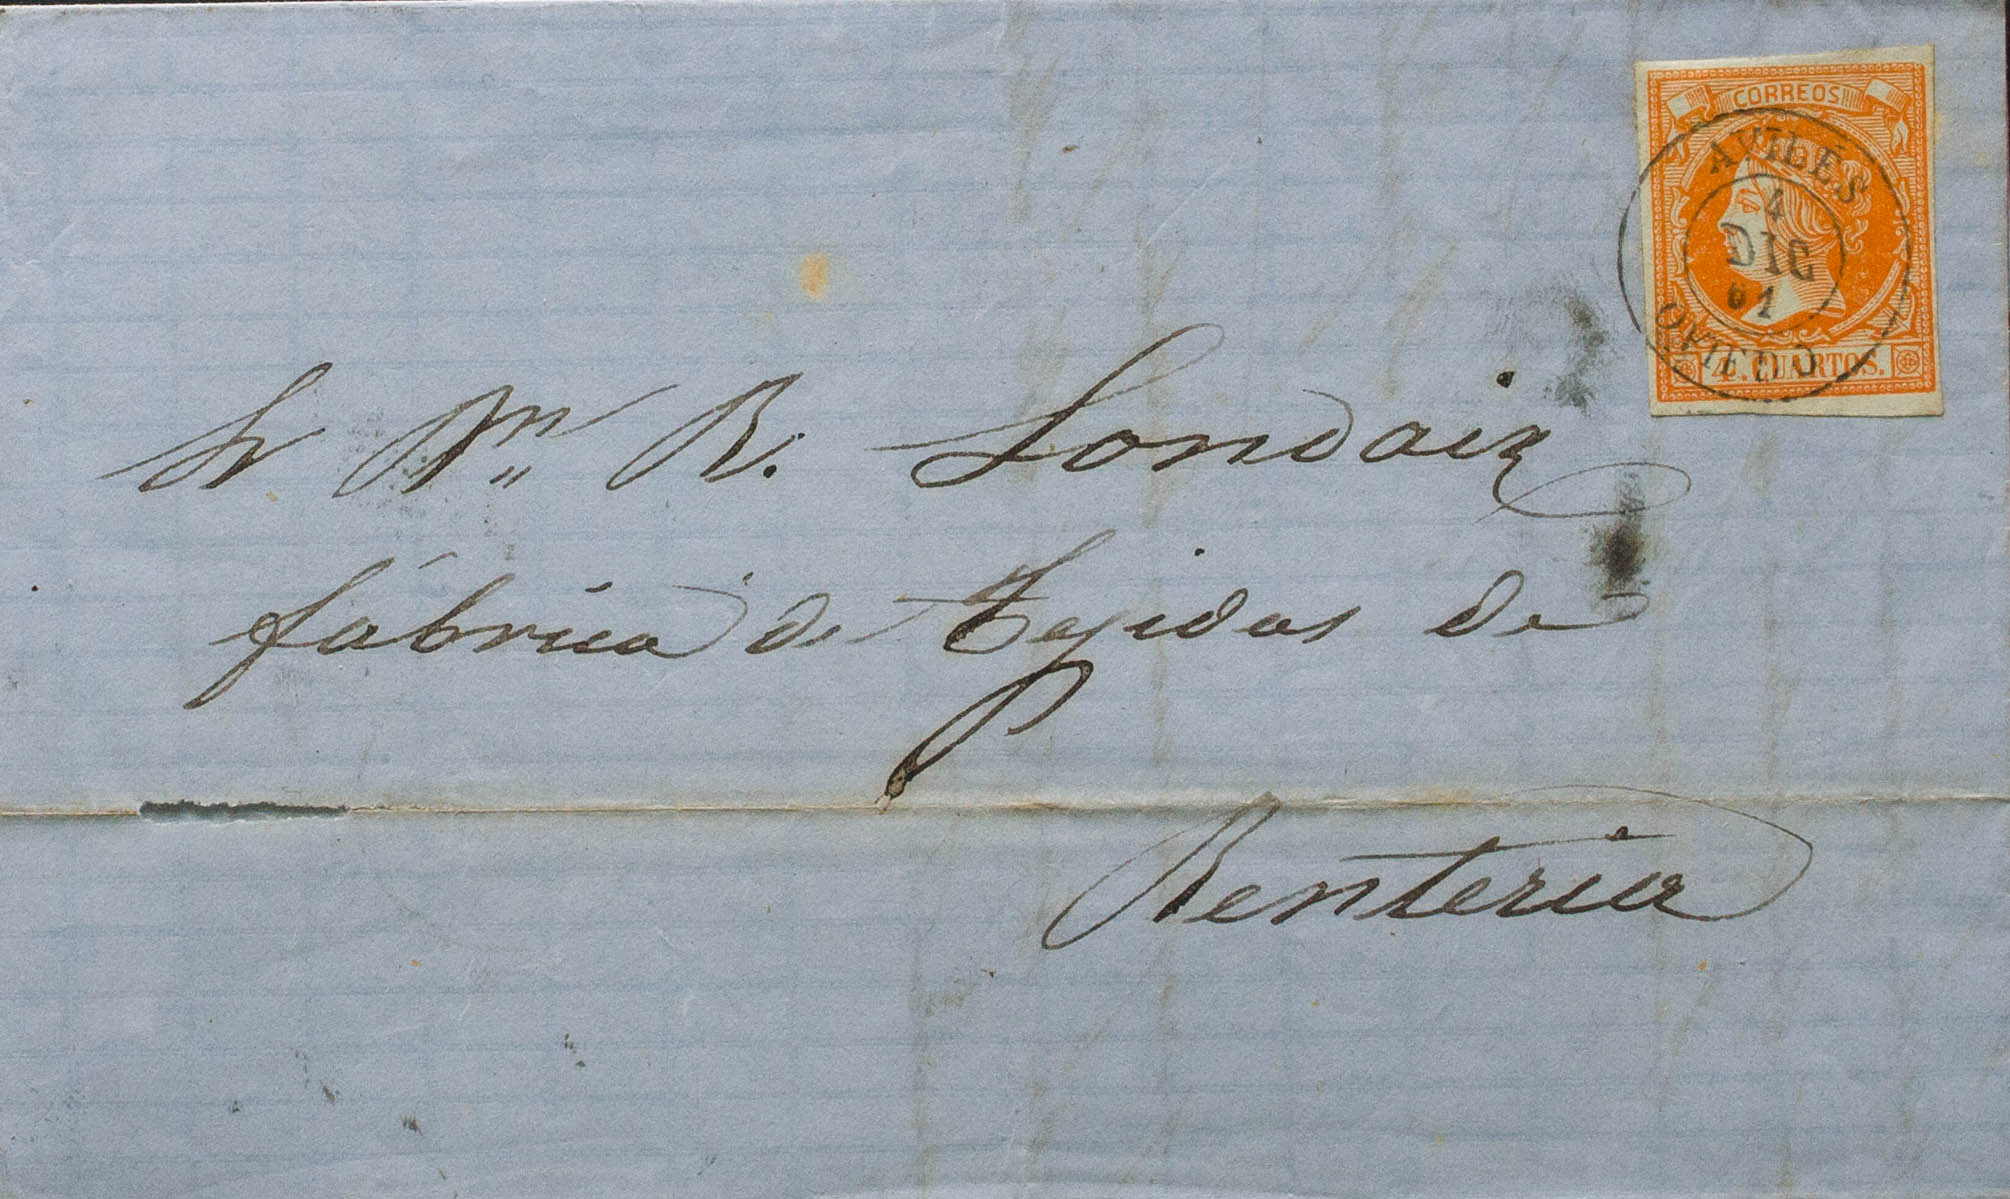 CORREOS
AVILÉS
4
DIC
61
OVIEDO
4. CUARTOS.
Sr Dn R. Londaiz
fábrica de Tejidos de
Renteria